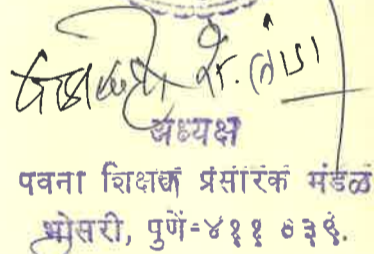 अध्यक्ष
पवना शिक्षण प्रसारक मंडळ
भोसरी, पुणे-४११ ०३९.